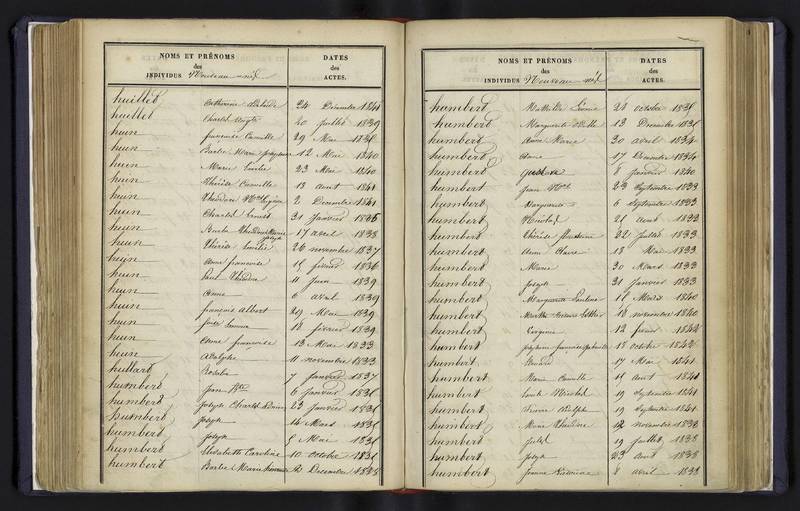 NOMS ET PRÉNOMS
des
INDIVIDUS Nouveau-nés
DATES
des
ACTES.
huillet Catherine Adelaide 24 Décembre 1841
huillet Charles 20 juillet 1839
huin françoise Camille 29 Mai 1835
huin Barbe Marie Joséphine 12 Mai 1840
huin Marie Emilie 23 Mai 1840
huin thérèse Camille 13 aout 1841
huin théodore 2 Décembre 1841
huin Charles Ernest 31 janvier 1835
huin Marie 17 avril 1838
Joseph
huin thérèse Emilie 26 novembre 1837
huin Anne françoise 15 février 1836
huin 11 juin 1839
huin Anne 6 avril 1839
huin françois albert 29 Mai 1839
huin 18 février 1839
huin Anne françoise 13 Mai 1833
huin 11 novembre 1833
hullard Rosalie 7 janvier 1837
humbert Jean Bte 6 janvier 1835
humbert Joseph Charles 23 janvier 1835
humbert Joseph 14 Mars 1835
humbert Joseph 5 Mai 1835
humbert Elisabeth Caroline 10 octobre 1835
humbert Barbe Marie 12 Décembre 1835
NOMS ET PRÉNOMS
des
INDIVIDUS Nouveau-nés
DATES
des
ACTES.
humbert Mathilde 24 octobre 1835
humbert Marguerite 13 Décembre 1835
humbert Anne Marie 30 avril 1834
humbert Anne 17 Décembre 1834
humbert Gustave 8 janvier 1840
humbert Jean Nas 23 Septembre 1833
humbert Marguerite 6 Septembre 1833
humbert Nicolas 21 Aout 1833
humbert thérèse 22 juillet 1833
humbert Anne Claire 18 Mai 1833
humbert Marie 30 Mars 1833
humbert Joseph 31 janvier 1833
humbert Marguerite Pauline 18 Mars 1840
humbert 18 novembre 1840
humbert Virginie 12 février 1842
humbert Joséphine françoise 18 octobre 1842
humbert Edouard 17 Mai 1841
humbert Marie Camille 15 aout 1841
humbert Louis Nicolas 19 Septembre 1841
humbert 19 Septembre 1841
humbert Marie théodore 12 novembre 1838
humbert 19 juillet 1838
humbert Joseph 23 aout 1838
humbert Jeanne 8 avril 1838